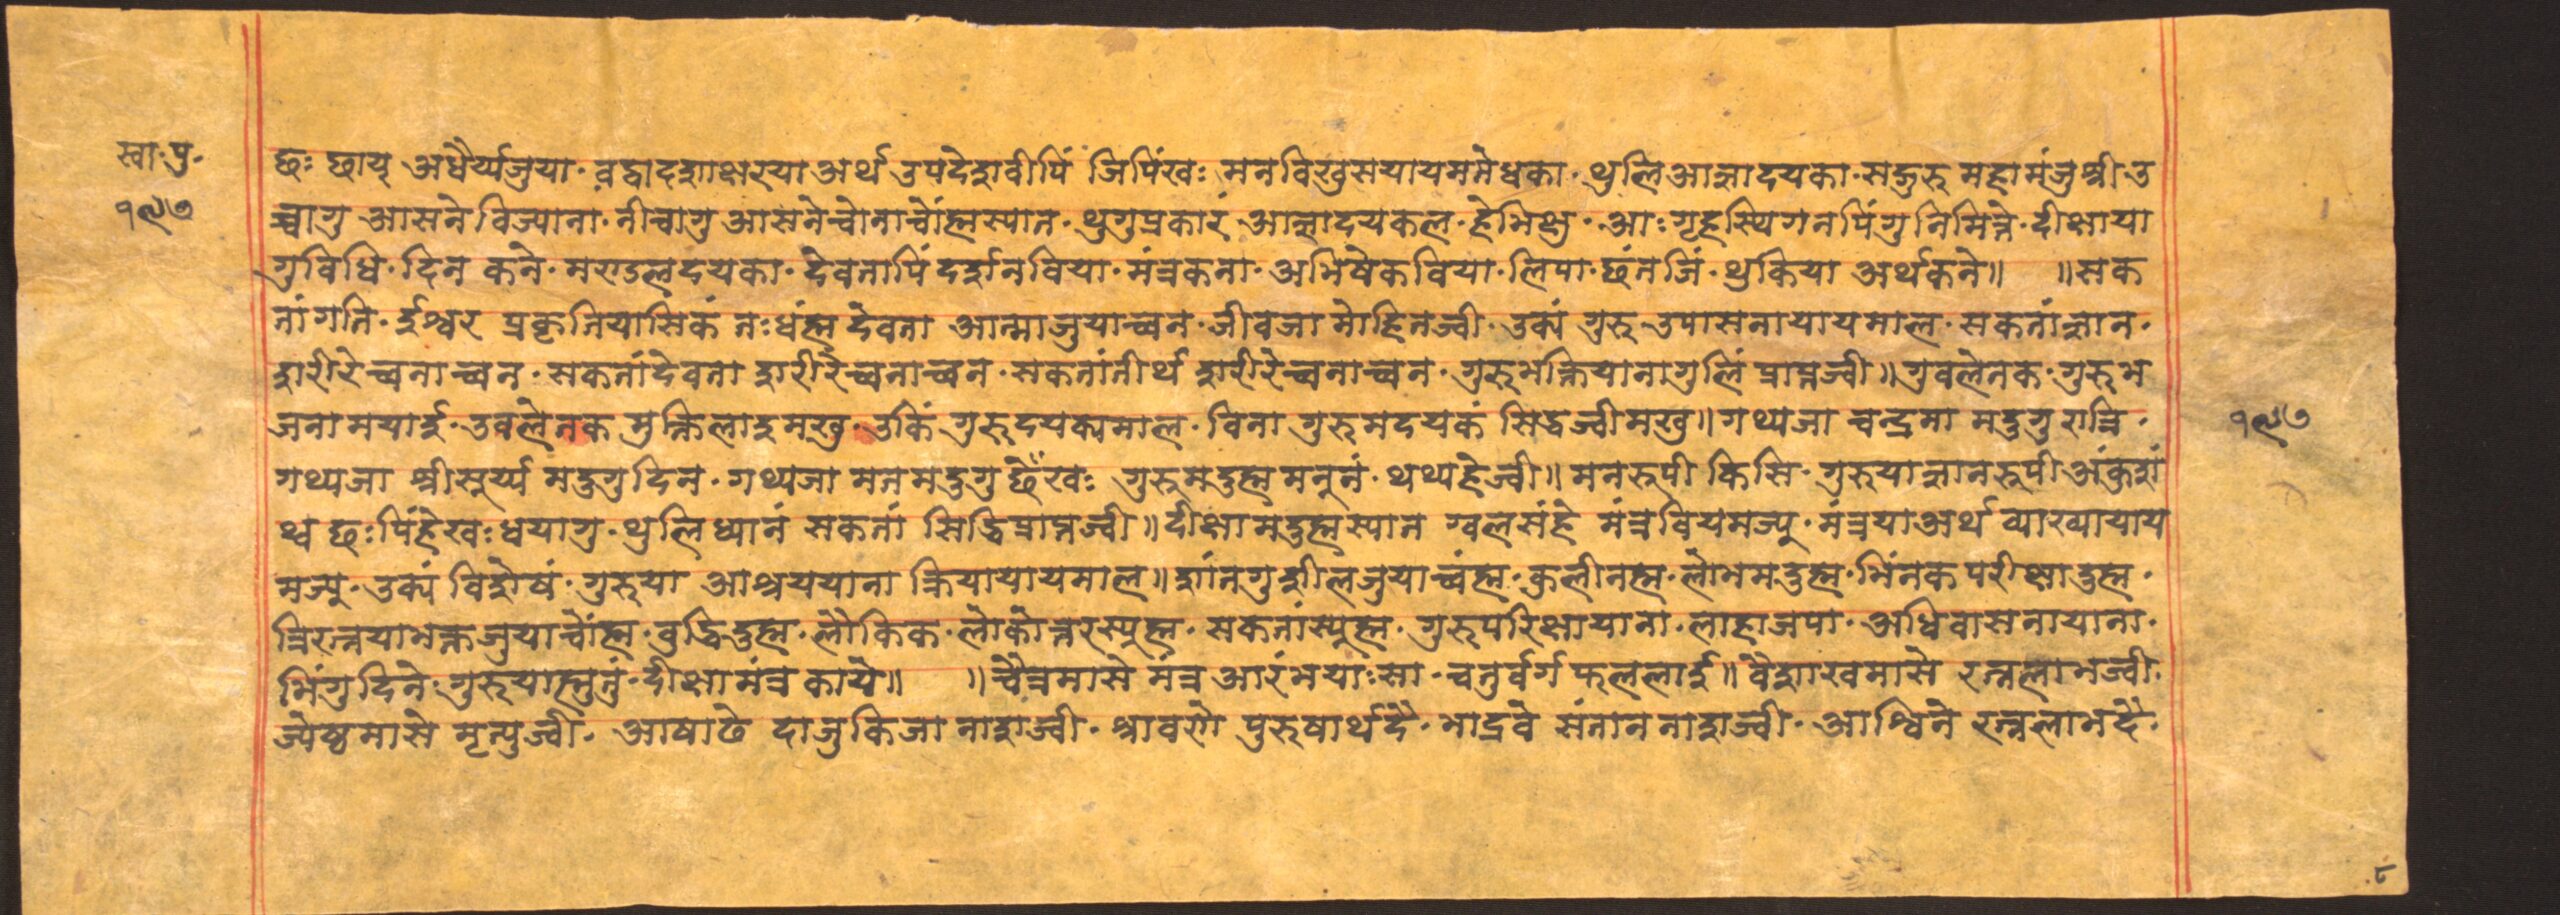 स्वा.पु.
१९७
छः छाय् अधैर्य्यजुया· व द्वादशाक्षरया अर्थ उपदेशवीपिं जिपिंखः मनविखुसयायममतेधका· थुलिआज्ञादयका· सद्गुरु महामंजुश्री उ
च्चागु आसने विज्याना· नीचागु आसनेच्वोनाच्वोंह्मस्यात· थुगुप्रकारं आज्ञादयकल· हेभिक्षु· आः गृहस्थिगनपिंगु निमित्ते· दीक्षाया
गुविधि· दिन कने· मण्डलदयका· देवतापिं दर्शनविया· मंत्रकना· अभिषेकविया· लिपा· छंतजिं· थुकिया अर्थकने॥ ॥सक
तांगति· ईश्वर प्रकृतियासिकं तःधंह्म देवता आत्माजुयाच्वन· जीवजा मोहितज्वी· उक्यं गुरु उपासनायायमाल· सकतांज्ञान·
शरीरेच्वनाच्वन· सकतांदेवता शरीरेच्वनाच्वन· सकतांतीर्थ शरीरेच्वनाच्वन· गुरुभक्तियानागुलिं प्राप्तज्वी॥ गुवलेतक· गुरुभ
जनामयाई· उवलेतक मुक्तिलाइमखु· उकिं गुरुदयक्यमाल· विना गुरुमदयकं सिद्धज्वीमखु॥ गथ्यजा चन्द्रमा मदुगु रात्रि·
गथ्यजा श्रीसूर्य्य मदुगुदिन· गथ्यजा मतमदुगु छेँखः गुरुमदुह्म मनूनं· थथ्यहेज्वी॥ मनरूपी किसि· गुरुया ज्ञानरूपी अंकुशं
थ्व छःपिंहेखःधयागु· थुलिध्यानं सकतां सिद्धिप्राप्तज्वी॥ दीक्षामंदुह्मस्यात ग्वलसंहे मंत्रवियमज्यु· मंत्रयाअर्थ व्याख्यायाय
मज्यु· उक्यं विशेषं· गुरुया आश्रययाना क्रियायायमाल॥ शांतगु शीलजुयाच्वंह्म· कुलीनह्म· लोभमदुह्म· भिंनक परीक्षादुह्म·
त्रिरत्नयाभक्तजुयाच्वोंह्म· वुद्धिदुह्म· लौकिक· लोकोत्तरस्यूह्म· सकतांस्यूह्म· गुरुपरिक्षायाना· लाहाजपा· अधिवासनायाना·
भिंगुदिने· गुरुयाह्मुतुं· दीक्षामंत्र काये॥ ॥चैत्रमासे मंत्र आरंभयाःसा· चतुर्वर्ग फललाई॥ वैशाखमासे रत्नलाभज्वी·
ज्येष्ठमासे मृत्युज्वी· आषाढे दाजुकिजा नाशज्वी· श्रावणे पुरुषार्थदै· भाद्रवे संताननाशज्वी· आश्विने रत्नलाभदै·
१९७
८